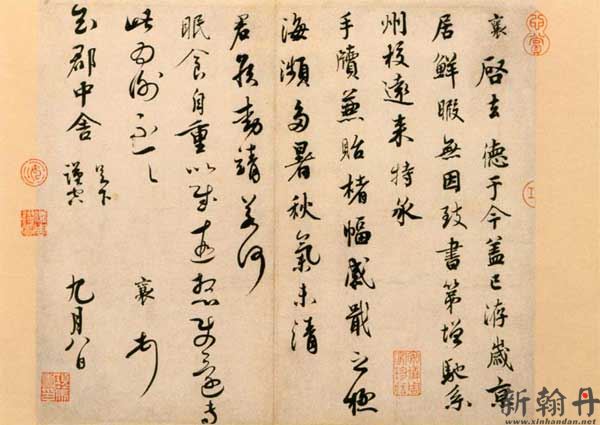 襄啓去德于今盖已洊歲京
居鮮暇無因致書第增馳系
州校遠來特承
手牘兼貽楮幅感戢之極
海瀕多暑秋氣未清
君侯動靜若何
眠食自重以慰遠想使還專
此為謝不一一 襄頓首
知郡中舍足下
謹空 九月八日
新翰丹
www.xinhandan.net